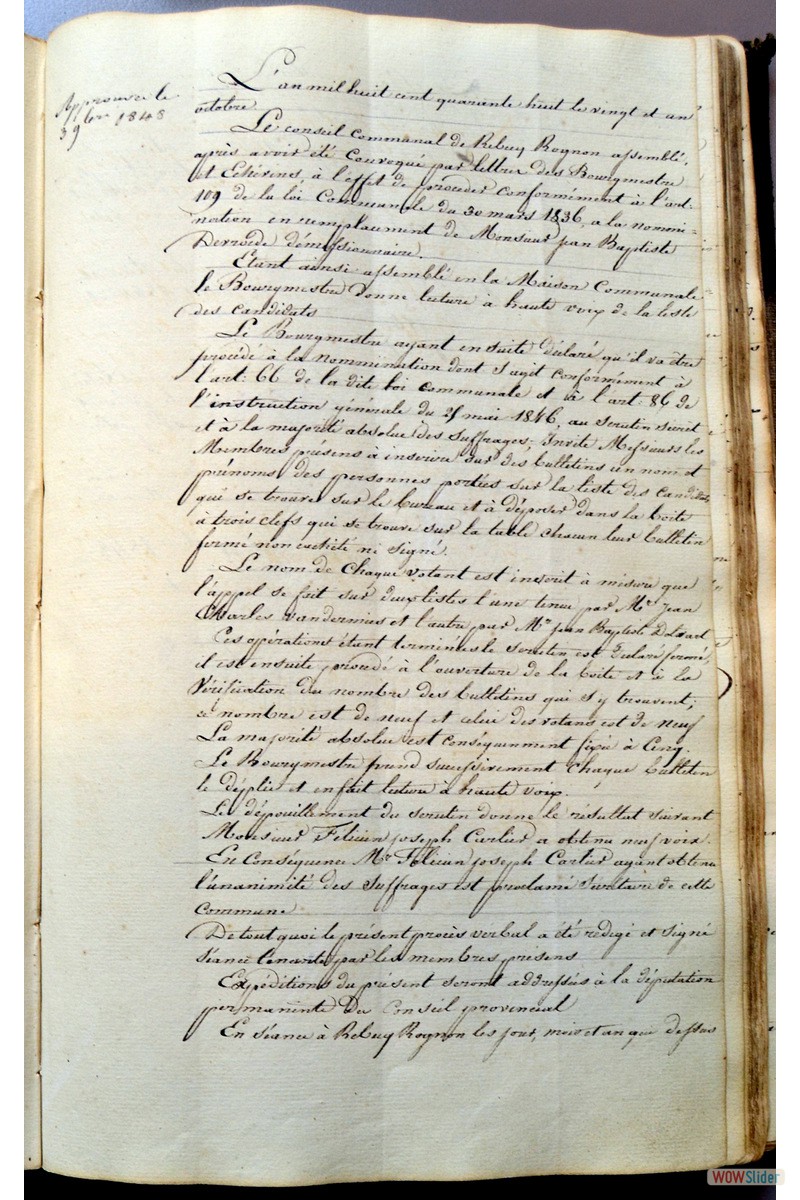 Approuvé le
9bre 1848
L'an mil huit cent quarante huit le vingt et un
octobre
Le conseil Communal de Rebecq Rognon assemblé,
après avoir été convoqué par lettres des Bourgmestre
et Echévins, à l'effet de procéder conformément à l'art:
109 de la loi Communale du 30 mars 1836, a la nomi-
nation en remplacement de Monsieur jean Baptiste
démissionnaire.
Etant ainsi assemblé en la Maison Communale
le Bourgmestre donne lecture à haute voix de la liste
des candidats
Le Bourgmestre ayant ensuite déclaré qu'il va être
procédé à la nommination dont s'agit conformément à
l'art: 66 de la dite loi communale et à l'art. 86 de
l'instruction générale du mai 1846, au scrutin secret
et à la majorité absolue des suffrages, Invite Messieurs les
Membres présens à inscrire sur des bulletins un nom et
prénoms des personnes portées sur la liste des candidats
qui se trouve sur le bureau et à déposer dans la boite
à trois clefs qui se trouve sur la table chacun leur bulletin
fermé non cacheté ni signé.
Le nom de Chaque votant est inscrit à mesure que
l'appel se fait sur deux listes l'une tenue par Mr Jean
Charles Vandernius et l'autre par Mr Jean Baptiste
Ces opérations étant terminées le scrutin est déclaré fermé,
il est ensuite procédé à l'ouverture de la boite et à la
Vérification du nombre des bulletins qui s'y trouvent;
ce nombre est de neuf et celui des votans est de neuf
La majorité absolue est conséquemment fixée à Cinq.
Le Bourgmestre prend successivement Chaque bulletin
le déplie et en fait lecture à haute voix.
Le dépouillement du scrutin donne le résultat suivant
Monsieur Félicien joseph Carlier a obtenu neuf voix.
En Conséquence Mr Félicien joseph Carlier ayant obtenu
l'unanimité des suffrages est proclamé Secrétaire de cette
Commune
De tout quoi le présent procès verbal a été rédigé et signé
séance tenante par les membres présens
Expéditions du présent seront addressées à la députation
permanente du Conseil provincial
En séance à Rebecq Rognon les jour, mois et an que dessus
WOWSlider